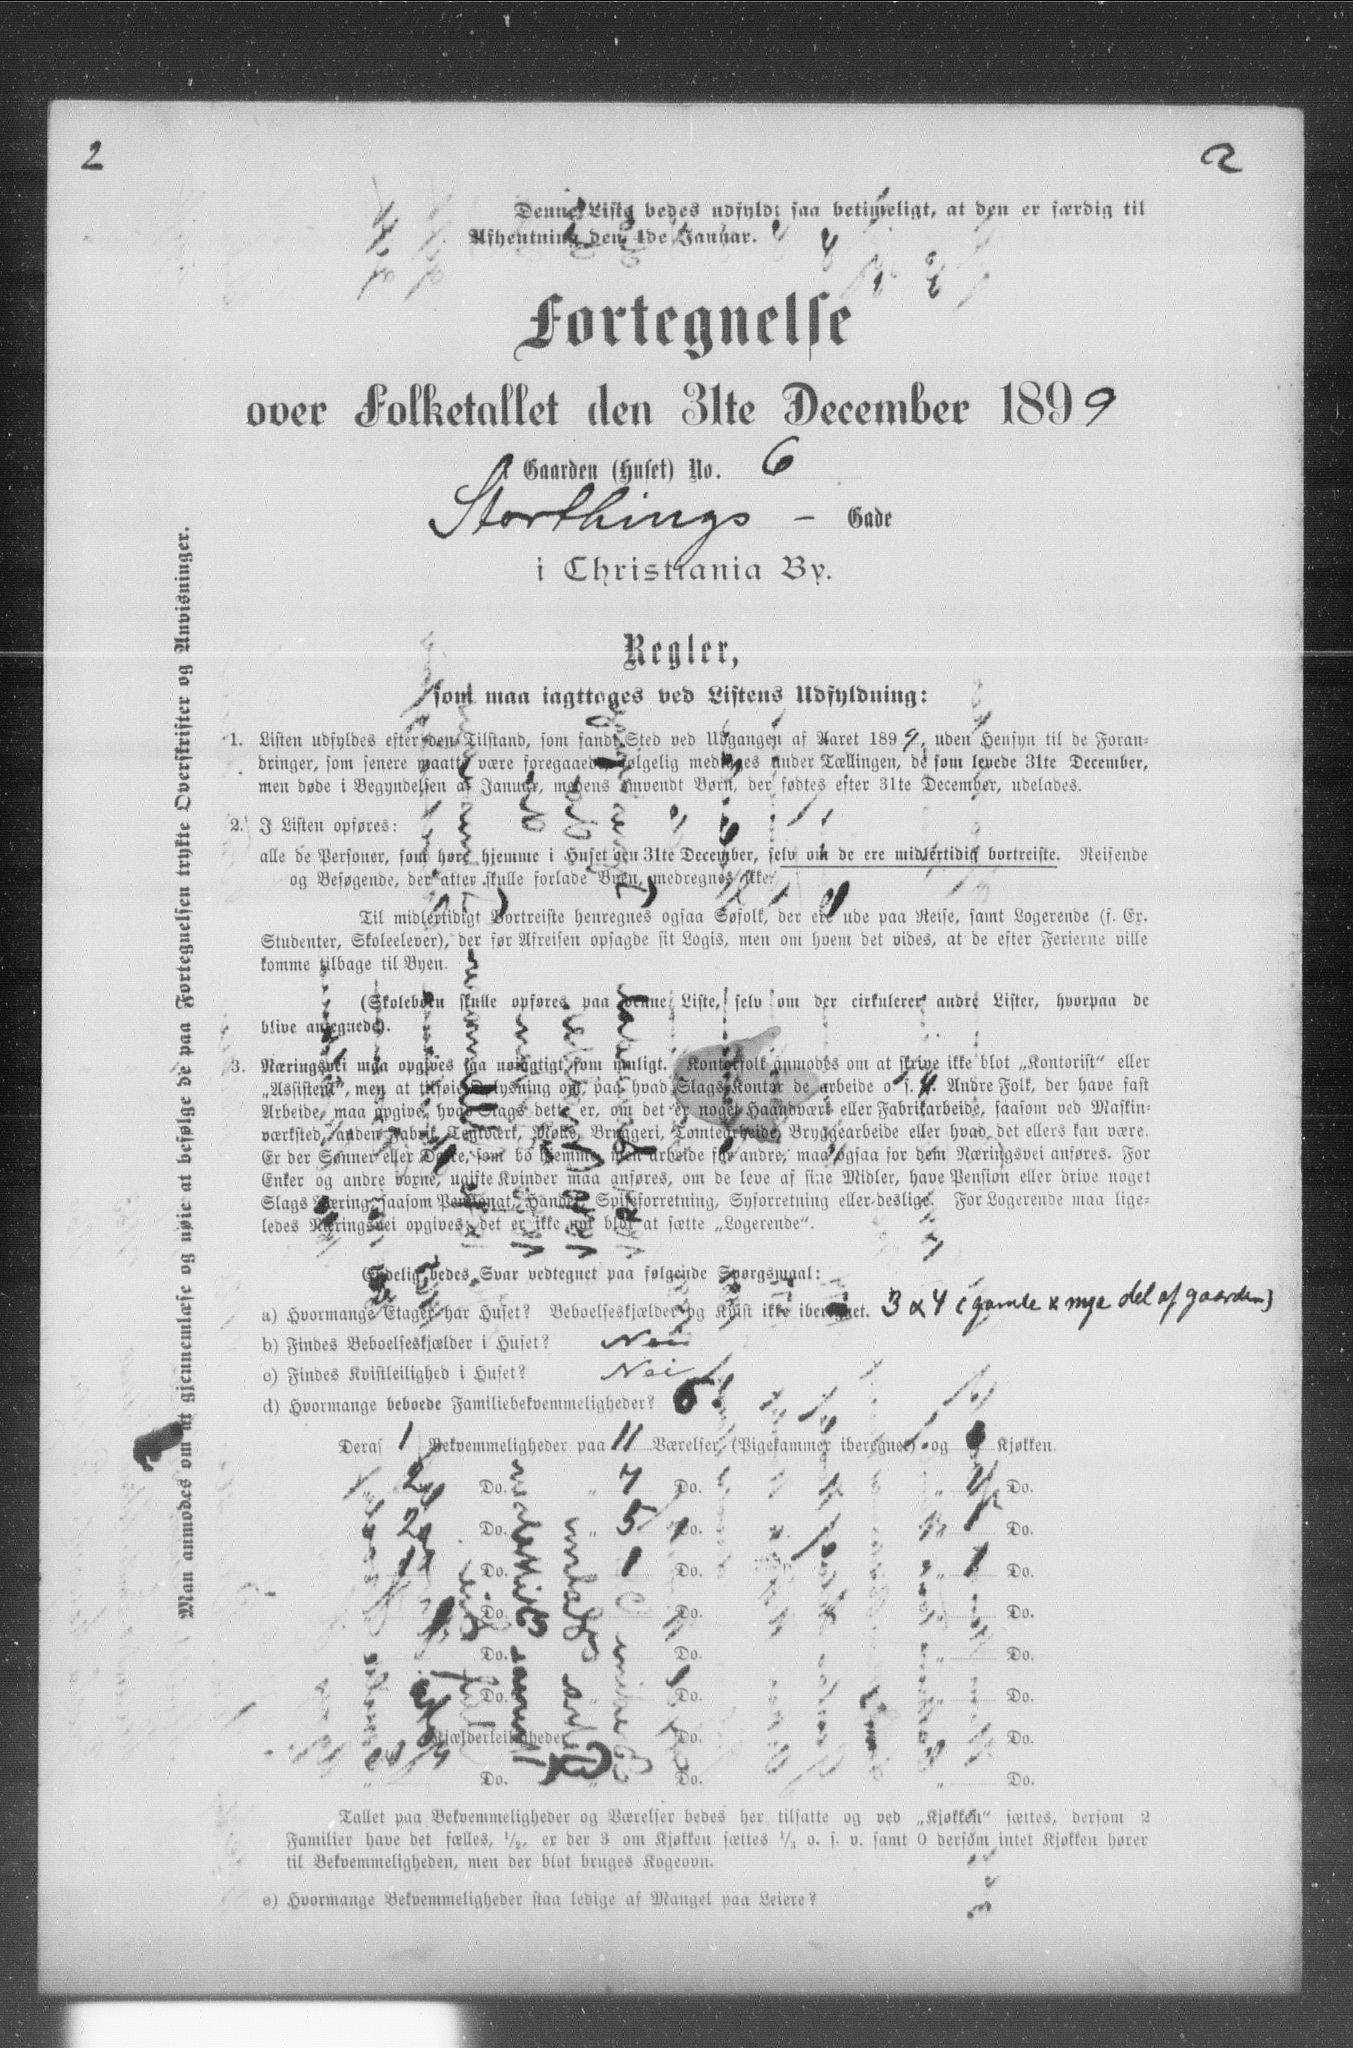 2
2
Denne Liste bedes udfyldt saa betimeligt, at den er færdig til
Afhentning den 4de Januar.
Fortegnelse
over Folketallet den 31te December 1899
i Gaarden (Huset) No. 6
Storthings - Gade
i Christiania By.
Regler,
som maa iagttages ved Listens Udfyldning:
1. Listen udfyldes efter den Tilstand, som fandt Sted ved Udgangen af Aaret 1899, uden Hensyn til de Foran-
dringer, som senere maatte være foregaaede, følgelig medtages under Tællingen, de som levede 31te December,
men døde i Begyndelsen af Januar, medens omvendt Børn, der fødtes efter 31te December, udelades.
2. I Listen opføres:
alle de Personer, som høre hjemme i Huset den 31te December, selv om de ere midlertidig bortreiste. Reisende
og Besøgende, der atter skulle forlade Byen, medregnes ikke.
Til midlertidigt Bortreiste henregnes ogsaa Søfolk, der ere ude paa Reise, samt Logerende (f. Ex.
Studenter, Skoleelever), der før Afreisen opsagde sit Logis, men om hvem det vides, at de efter Ferierne ville
komme tilbage til Byen.
(Skolebørn skulle opføres paa denne Liste, selv om der cirkulerer andre Lister, hvorpaa de
blive antegnede).
3. Næringsvei maa opgives saa nøiagtigt som muligt. Kontorfolk anmodes om at skrive ikke blot „Kontorist“ eller
„Assistent“, men at tilføie Oplysning om, paa hvad Slags Kontor de arbeide o. s. v. Andre Folk, der have fast
Arbeide, maa opgive, hvad Slags dette er, om det er noget Haandværk eller Fabrikarbeide, saasom ved Maskin-
værksted, anden Fabrik, Teglværk, Mølle, Bryggeri, Tomtearbeide, Bryggearbeide eller hvad det ellers kan være.
Er der Sønner eller Døtre, som bo hjemme, men arbeide for andre, maa ogsaa for dem Næringsvei anføres. For
Enker og andre voxne, ugifte Kvinder maa anføres, om de leve af sine Midler, have Pension eller drive noget
Slags Næring, saasom Pensionat, Handel, Spiseforretning, Syforretning eller deslige. For Logerende maa lige-
ledes Næringsvei opgives; det er ikke nok blot at sætte „Logerende“.
Endelig bedes Svar vedtegnet paa følgende Spørgsmaal:
a) Hvormange Etager har Huset? Beboelseskjælder og Kvist ikke iberegnet. 3 & 4 (gamle & nye del af gaarden)
b) Findes Beboelseskjælder i Huset? Nei
c) Findes Kvistleilighed i Huset? Nei
d) Hvormange beboede Familiebekvemmeligheder? 6
Deraf 1 Bekvemmeligheder paa 11 Værelser (Pigekammer iberegnet) og Kjøkken.
„ 2 Do. „ 7 Do. „ Do.
„ 2 Do. „ 5 Do. „ 1 Do.
„ 1 Do. „ 1 Do. „ 1 Do.
„ Do. „ Do. „ Do.
„ Do. „ Do. „ Do.
„ Do. „ Do. „ Do.
„ Kjælderleiligheder „ Do. „ Do.
„ Do. „ Do. „ Do.
Tallet paa Bekvemmeligheder og Værelser bedes her tilsatte og ved „Kjøkken“ sættes, dersom 2
Familier have det fælles, 1/2, er der 3 om Kjøkken sættes 1/3 o. s. v. samt 0 dersom intet Kjøkken hører
til Bekvemmeligheden, men der blot bruges Kogeovn.
e) Hvormange Bekvemmeligheder staa ledige af Mangel paa Leiere?
Man anmodes om at gjennemlæse og nøie at befølge de paa Fortegnelsen trykte Overskrifter og Anvisninger.